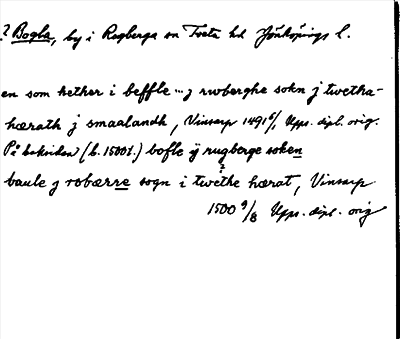 ? Bogla, by i Rogberga sn Tveta hd Jönköpings l.
en som hether i beffle ... j rwberghe sokn j twetha-
hærath j smaalandh, Vinsarp 1491 6/1, Upps. dipl. orig.
På baksidan (b. 1500t.) bofle ÿ rugberge soken
baule j robærre sogn i twethe hærat, Vinsarp
1500 9/8 Upps. dipl. orig